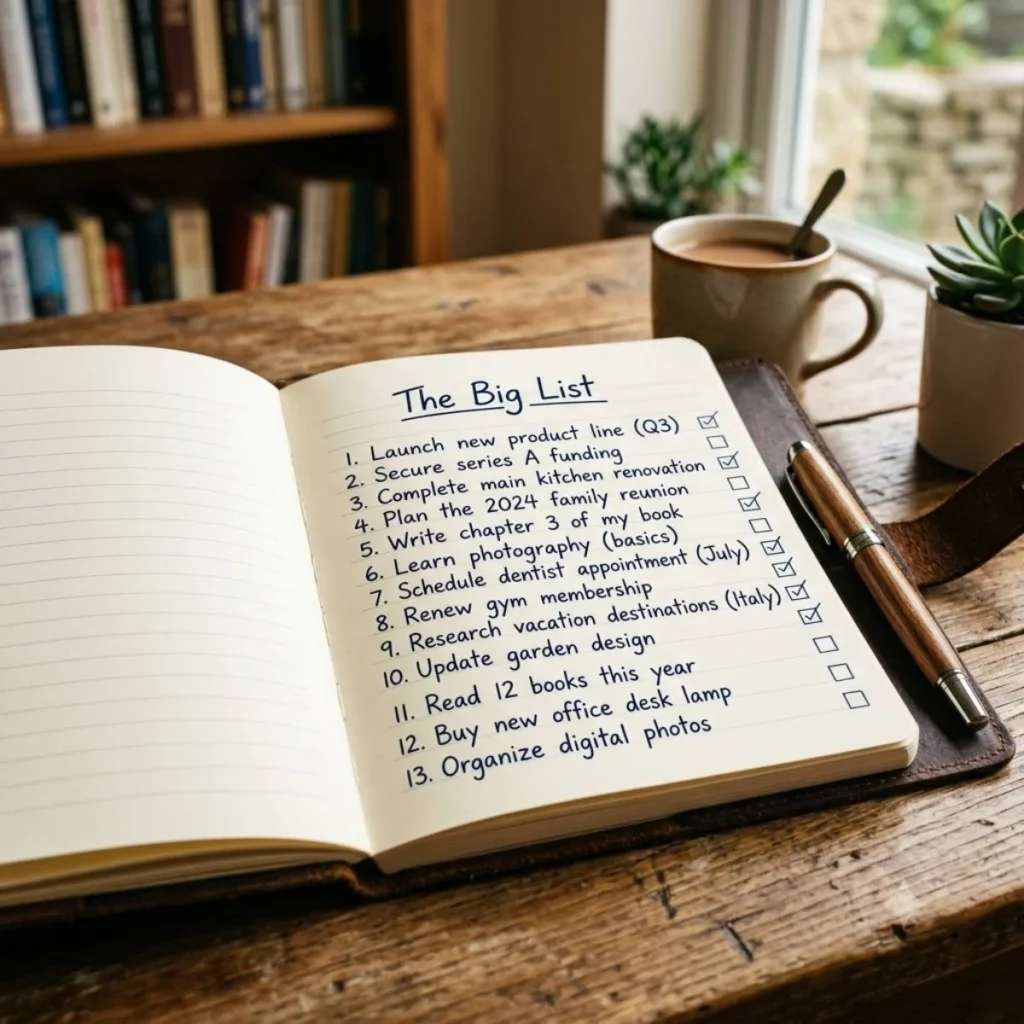 The Big List
1. Launch new product line (Q3) ☑
2. Secure series A funding ☐
3. Complete main kitchen renovation ☑
4. Plan the 2024 family reunion ☐
5. Write chapter 3 of my book ☑
6. Learn photography (basics) ☐
7. Schedule dentist appointment (July) ☑
8. Renew gym membership ☑
9. Research vacation destinations (Italy) ☑
10. Update garden design ☑
11. Read 12 books this year ☐
12. Buy new office desk lamp ☐
13. Organize digital photos ☐